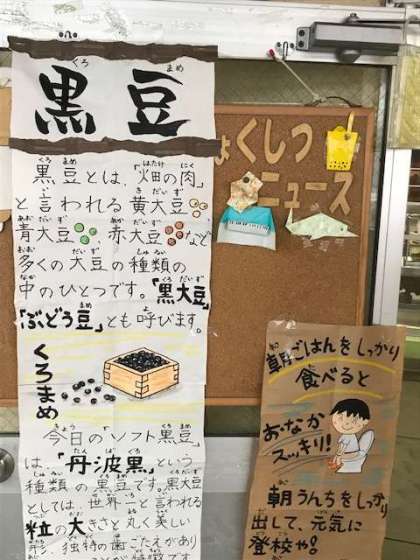 黒豆
黒豆とは、「畑の肉」
と言われる黄大豆
青大豆、赤大豆など
多くの大豆の種類の
中のひとつです。「黒大豆」
「ぶどう豆」とも呼びます。
くろまめ
今日のソフト黒豆」
は、「丹波黒」という
種類の黒豆です。黒大豆
としては、世界一と言われる
粒の大きさと丸く美しい
形、独特の歯ごたえがあり
ょくしつ
ニュース
朝ごはんをしっかり
食べると
おなか
スッキリ!
朝うんちをしっかり
出して、元気に
登校や!